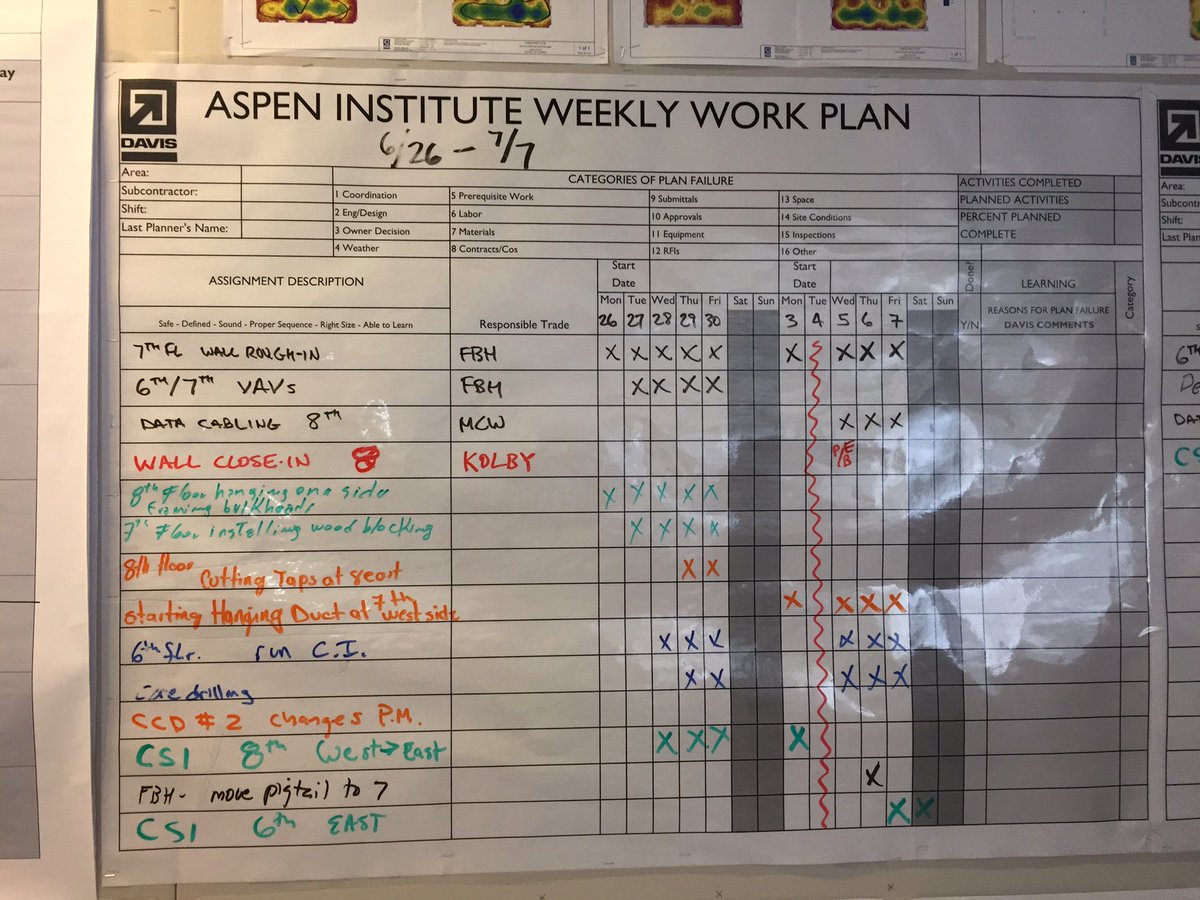 ay
DAVIS
ASPEN INSTITUTE WEEKLY WORK PLAN
6/26 - 7/7
Area:
Subcontractor:
Shift:
Last Planner's Name:
CATEGORIES OF PLAN FAILURE
1 Coordination 5 Prerequisite Work 9 Submittals 13 Space
2 Eng/Design 6 Labor 10 Approvals 14 Site Conditions
3 Owner Decision 7 Materials 11 Equipment 15 Inspections
4 Weather 8 Contracts/Cos 12 RFIs 16 Other
ACTIVITIES COMPLETED
PLANNED ACTIVITIES
PERCENT PLANNED
COMPLETE
ASSIGNMENT DESCRIPTION
Safe - Defined - Sound - Proper Sequence - Right Size - Able to Learn
Responsible Trade
Start Date Start Date
Mon Tue Wed Thu Fri Sat Sun Mon Tue Wed Thu Fri Sat Sun
26 27 28 29 30 3 4 5 6 7
Done?
Y/N
LEARNING
REASONS FOR PLAN FAILURE
DAVIS COMMENTS
Category
7TH FL WALL ROUGH-IN FBH X X X X X X X X X
6TH/7TH VAVs FBH X X X X
DATA CABLING 8TH MCW X X X
WALL CLOSE-IN 8 KOLBY P/E/B
8th Floor hanging one side
framing bulkheads X X X X X
7th Floor installing wood blocking X X X X
8th floor Cutting Taps at 8east X X
starting Hanging Duct at 7th west side X X X X
6th flr. run C.I. X X X X X X
core drilling X X X X X
CCD #2 changes P.M.
CSI 8th West→East X X X X
FBH- move pigtail to 7 X
CSI 6th EAST X X
DAVIS
Area:
Subcontr
Shift:
Last Plan
6TH
DAT
CS